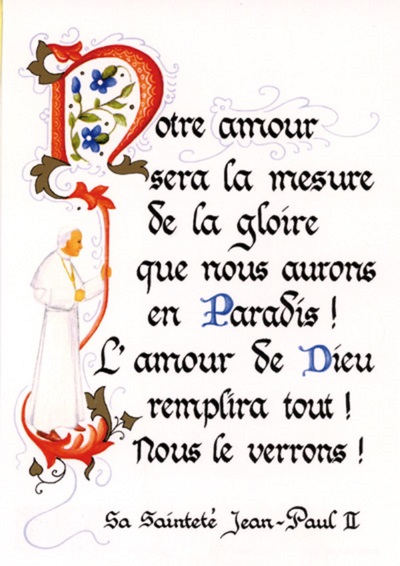 Notre amour
sera la mesure
de la gloire
que nous aurons
en Paradis !
L'amour de Dieu
remplira tout !
Nous le verrons !
Sa Sainteté Jean-Paul II